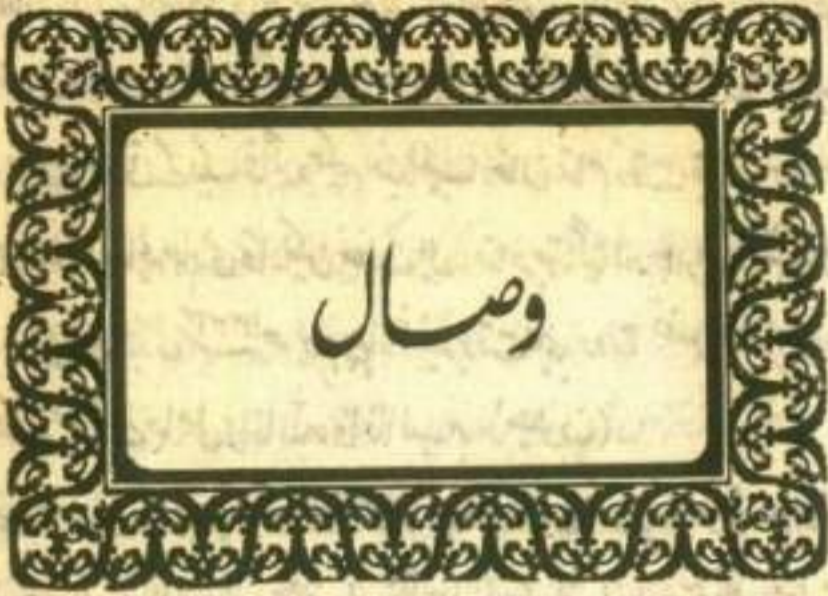 وصال